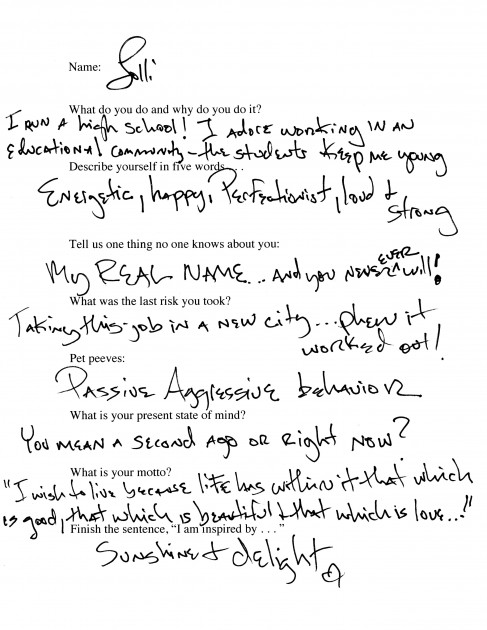 Name: Solli
What do you do and why do you do it?
I RUN A high School! I Adore working IN AN
Educational Community - the students Keep me young
Describe yourself in five words...
Energetic, happy, Perfectionist, loud & 
strong
Tell us one thing no one knows about you:
My REAL NAME... And you NEVER EVER will!
What was the last risk you took?
Taking this job in a new city... phew it
worked out!
Pet peeves:
Passive Aggressive behavior
What is your present state of mind?
You mean a second ago or Right Now?
What is your motto?
"I wish to live because life has within it that which
is good, that which is beautiful & that which is love..."
Finish the sentence, "I am inspired by . . ."
Sunshine & delight